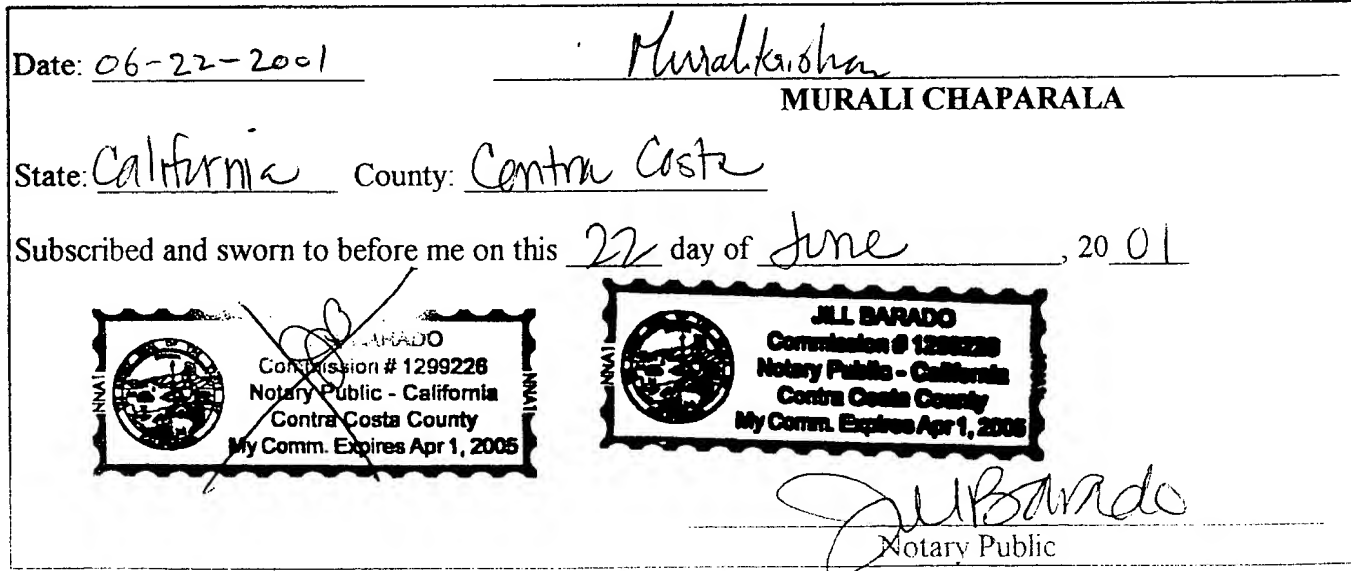 Date: 06-22-2001 Muralikrishna
MURALI CHAPARALA
State: California County: Contra Costa
Subscribed and sworn to before me on this 22 day of June, 20 01
ARADO
Commission # 1299226
Notary Public - California
Contra Costa County
My Comm. Expires Apr 1, 2005
NNA1
NNA1
JILL BARADO
Commission # 1299226
Notary Public - California
Contra Costa County
My Comm. Expires Apr 1, 2005
NNA1
Jill Barado
Notary Public